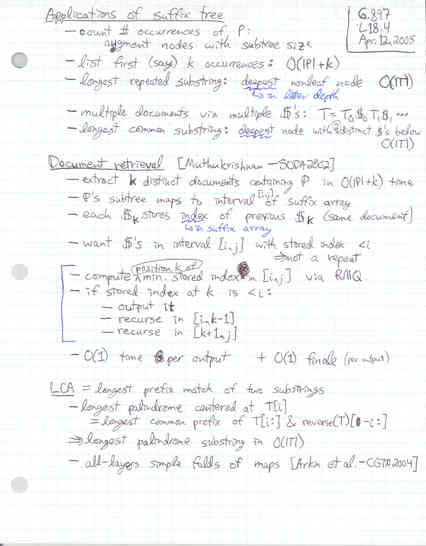 Applications of suffix tree
6.897
L18.4
Apr. 12, 2005
– count # occurrences of P:
augment nodes with subtree size
– list first (say) k occurrences: O(|P|+k)
– longest repeated substring: deepest nonleaf node O(|T|)
↳ in letter depth
– multiple documents via multiple $'s: T = T₁$₁T₂$₂ ⋯
– longest common substring: deepest node with distinct $'s below
O(|T|)
Document retrieval [Muthukrishnan – SODA 2002]
– extract k distinct documents containing P in O(|P|+k) time
– P's subtree maps to interval [i,j] of suffix array
– each $ₖ stores index of previous $ₖ (same document)
↳ in suffix array
– want $'s in interval [i,j] with stored index < i
⇒ not a repeat
– compute position k of min. stored index in [i,j] via RMQ
– if stored index at k is < i:
– output it
– recurse in [i,k-1]
– recurse in [k+1,j]
– O(1) time per output + O(1) finale (per output)
LCA = longest prefix match of two substrings
– longest palindrome centered at T[i]
= longest common prefix of T[i:] & reverse(T)[-i:]
⇒ longest palindrome substring in O(|T|)
– all-layers simple folds of maps [Arkin et al. – CGTA 2004]